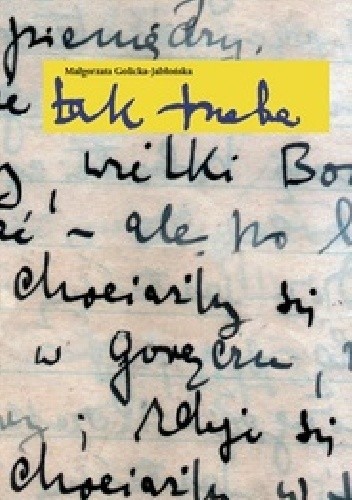 pieniędzy.
Małgorzata Golicka-Jabłońska
tak trzeba
wielki Bo
ć – ale po
chociażby się
w gorącu,
; zdaje się
chociażby w